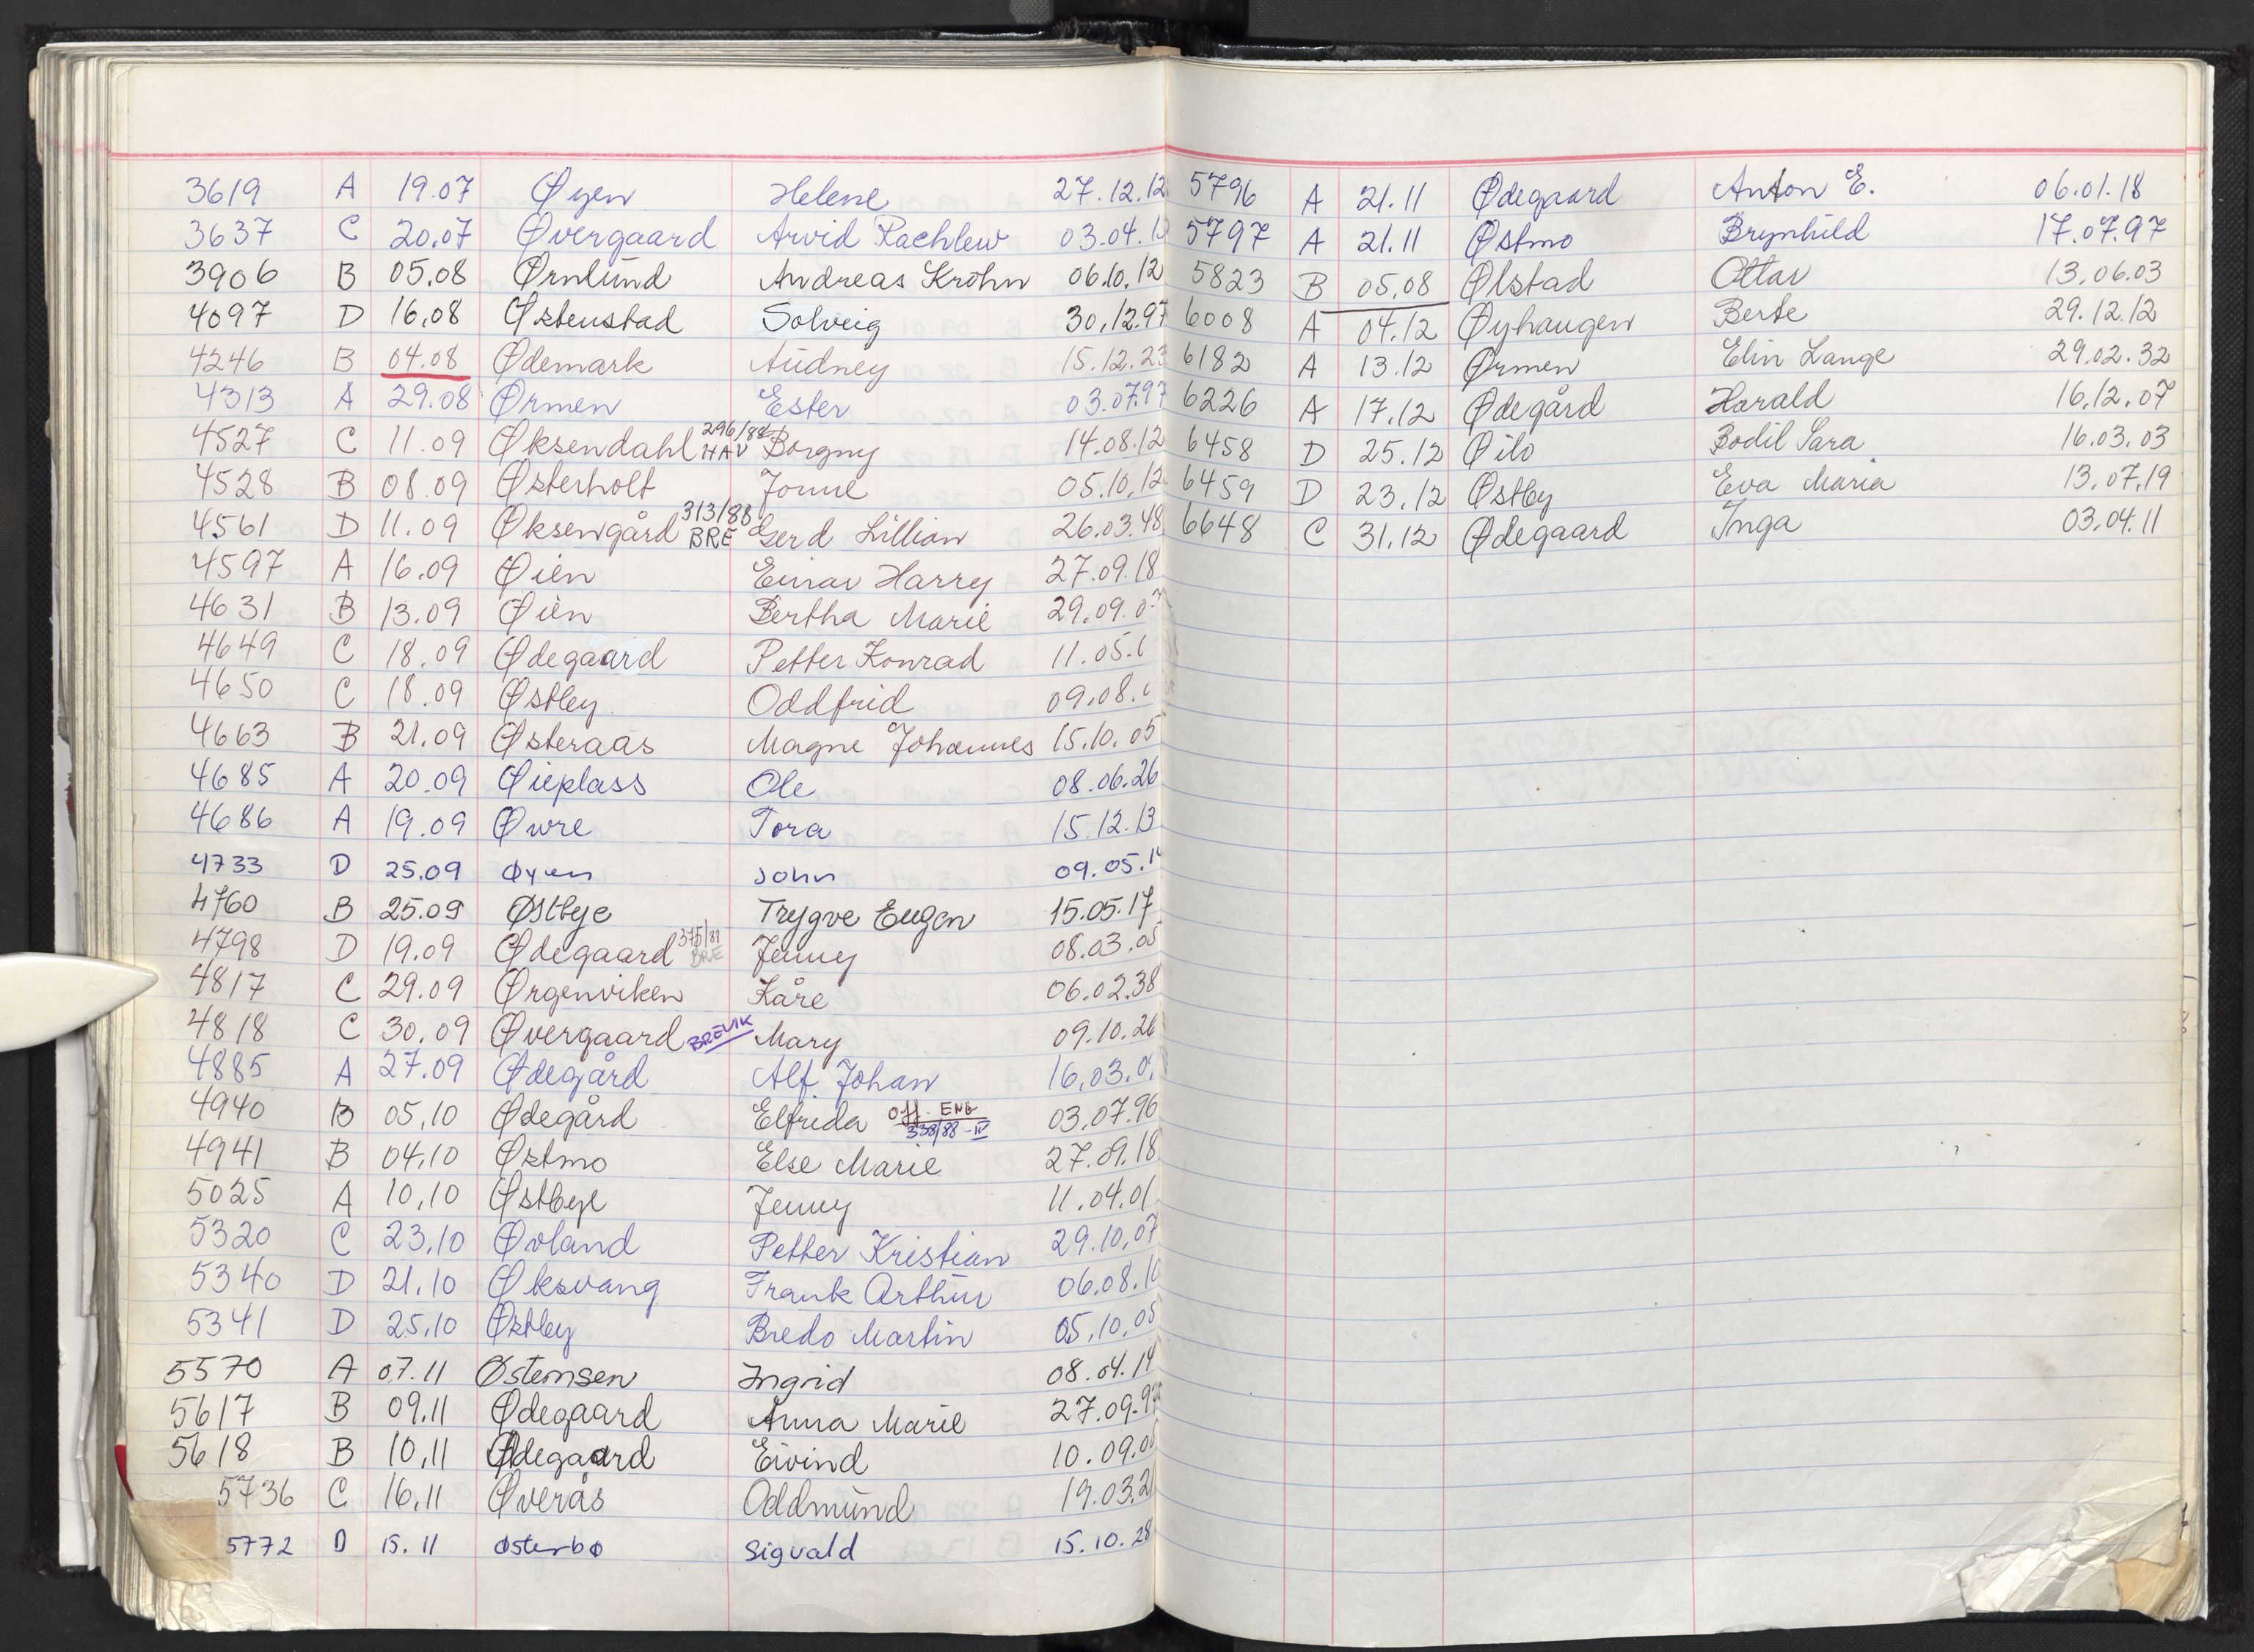 3619 A 19.07 Øyen Helene 27.12.12
3637 C 20.07 Øvergaard Arvid Rachlew 03.04.1
3906 B 05.08 Ørnlund Andreas Krohn 06.10.12
4097 D 16.08 Østenstad Solveig 30.12.97
4246 B 04.08 Ødemark Audney 15.12.23
4313 A 29.08 Ørmen Ester 03.07.97
4527 C 11.09 Øksendahl 296/88 HAV Borgny 14.08.12
4528 B 08.09 Østerholt Jonne 05.10.12
4561 D 11.09 Øksengård 313/88 BRE Gerd Lillian 26.03.48
4597 A 16.09 Øien Einar Harry 27.09.18
4631 B 13.09 Øien Bertha Marie 29.09.0
4649 C 18.09 Ødegaard Petter Konrad 11.05.
4650 C 18.09 Østby Oddfrid 09.08.
4663 B 21.09 Østeraas Magne Johannes 15.10.05
4685 A 20.09 Øieplass Ole 08.06.26
4686 A 19.09 Øvre Tora 15.12.13
4733 D 25.09 Øyen John 09.05.1
4760 B 25.09 Østbye Trygve Eugen 15.05.17
4798 D 19.09 Ødegaard 375/88 BRE Jenny 08.03.05
4817 C 29.09 Ørgenviken Kåre 06.02.38
4818 C 30.09 Øvergaard BREVIK Mary 09.10.26
4885 A 27.09 Ødegård Alf Johan 16.03.0
4940 B 05.10 Ødegård Elfrida Off. ENG 338/88-IV 03.07.96
4941 B 04.10 Østmo Else Marie 27.09.18
5025 A 10.10 Østbye Jenny 11.04.01
5320 C 23.10 Øvland Petter Kristian 29.10.07
5340 D 21.10 Øksvang Frank Arthur 06.08.10
5341 D 25.10 Østby Bredo Martin 05.10.05
5570 A 07.11 Østensen Ingrid 08.04.14
5617 B 09.11 Ødegaard Anna Marie 27.09.9
5618 B 10.11 Ødegaard Eivind 10.09.0
5736 C 16.11 Øverås Oddmund 19.03.2
5772 D 15.11 Østerbø Sigvald 15.10.28
5796 A 21.11 Ødegaard Anton E. 06.01.18
5797 A 21.11 Østmo Brynhild 17.07.97
5823 B 05.08 Ølstad Ottar 13.06.03
6008 A 04.12 Øyhaugen Berte 29.12.12
6182 A 13.12 Ørmen Elin Lange 29.02.32
6226 A 17.12 Ødegård Harald 16.12.07
6458 D 25.12 Øilo Bodil Sara 16.03.03
6459 D 23.12 Østby Eva Maria 13.07.19
6648 C 31.12 Ødegaard Inga 03.04.11